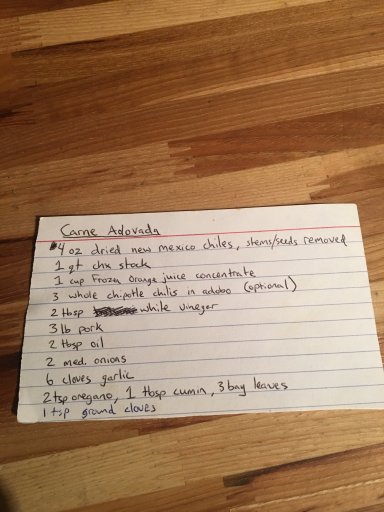 Carne Adovada
4 oz dried new mexico chiles, stems/seeds removed
1 qt chx stock
1 cup Frozen Orange juice concentrate
3 whole chipotle chilis in adobo (optional)
2 tbsp white vinegar
3 lb pork
2 tbsp oil
2 med. onions
6 cloves garlic
2 tsp oregano, 1 tbsp cumin, 3 bay leaves
1 tsp ground cloves